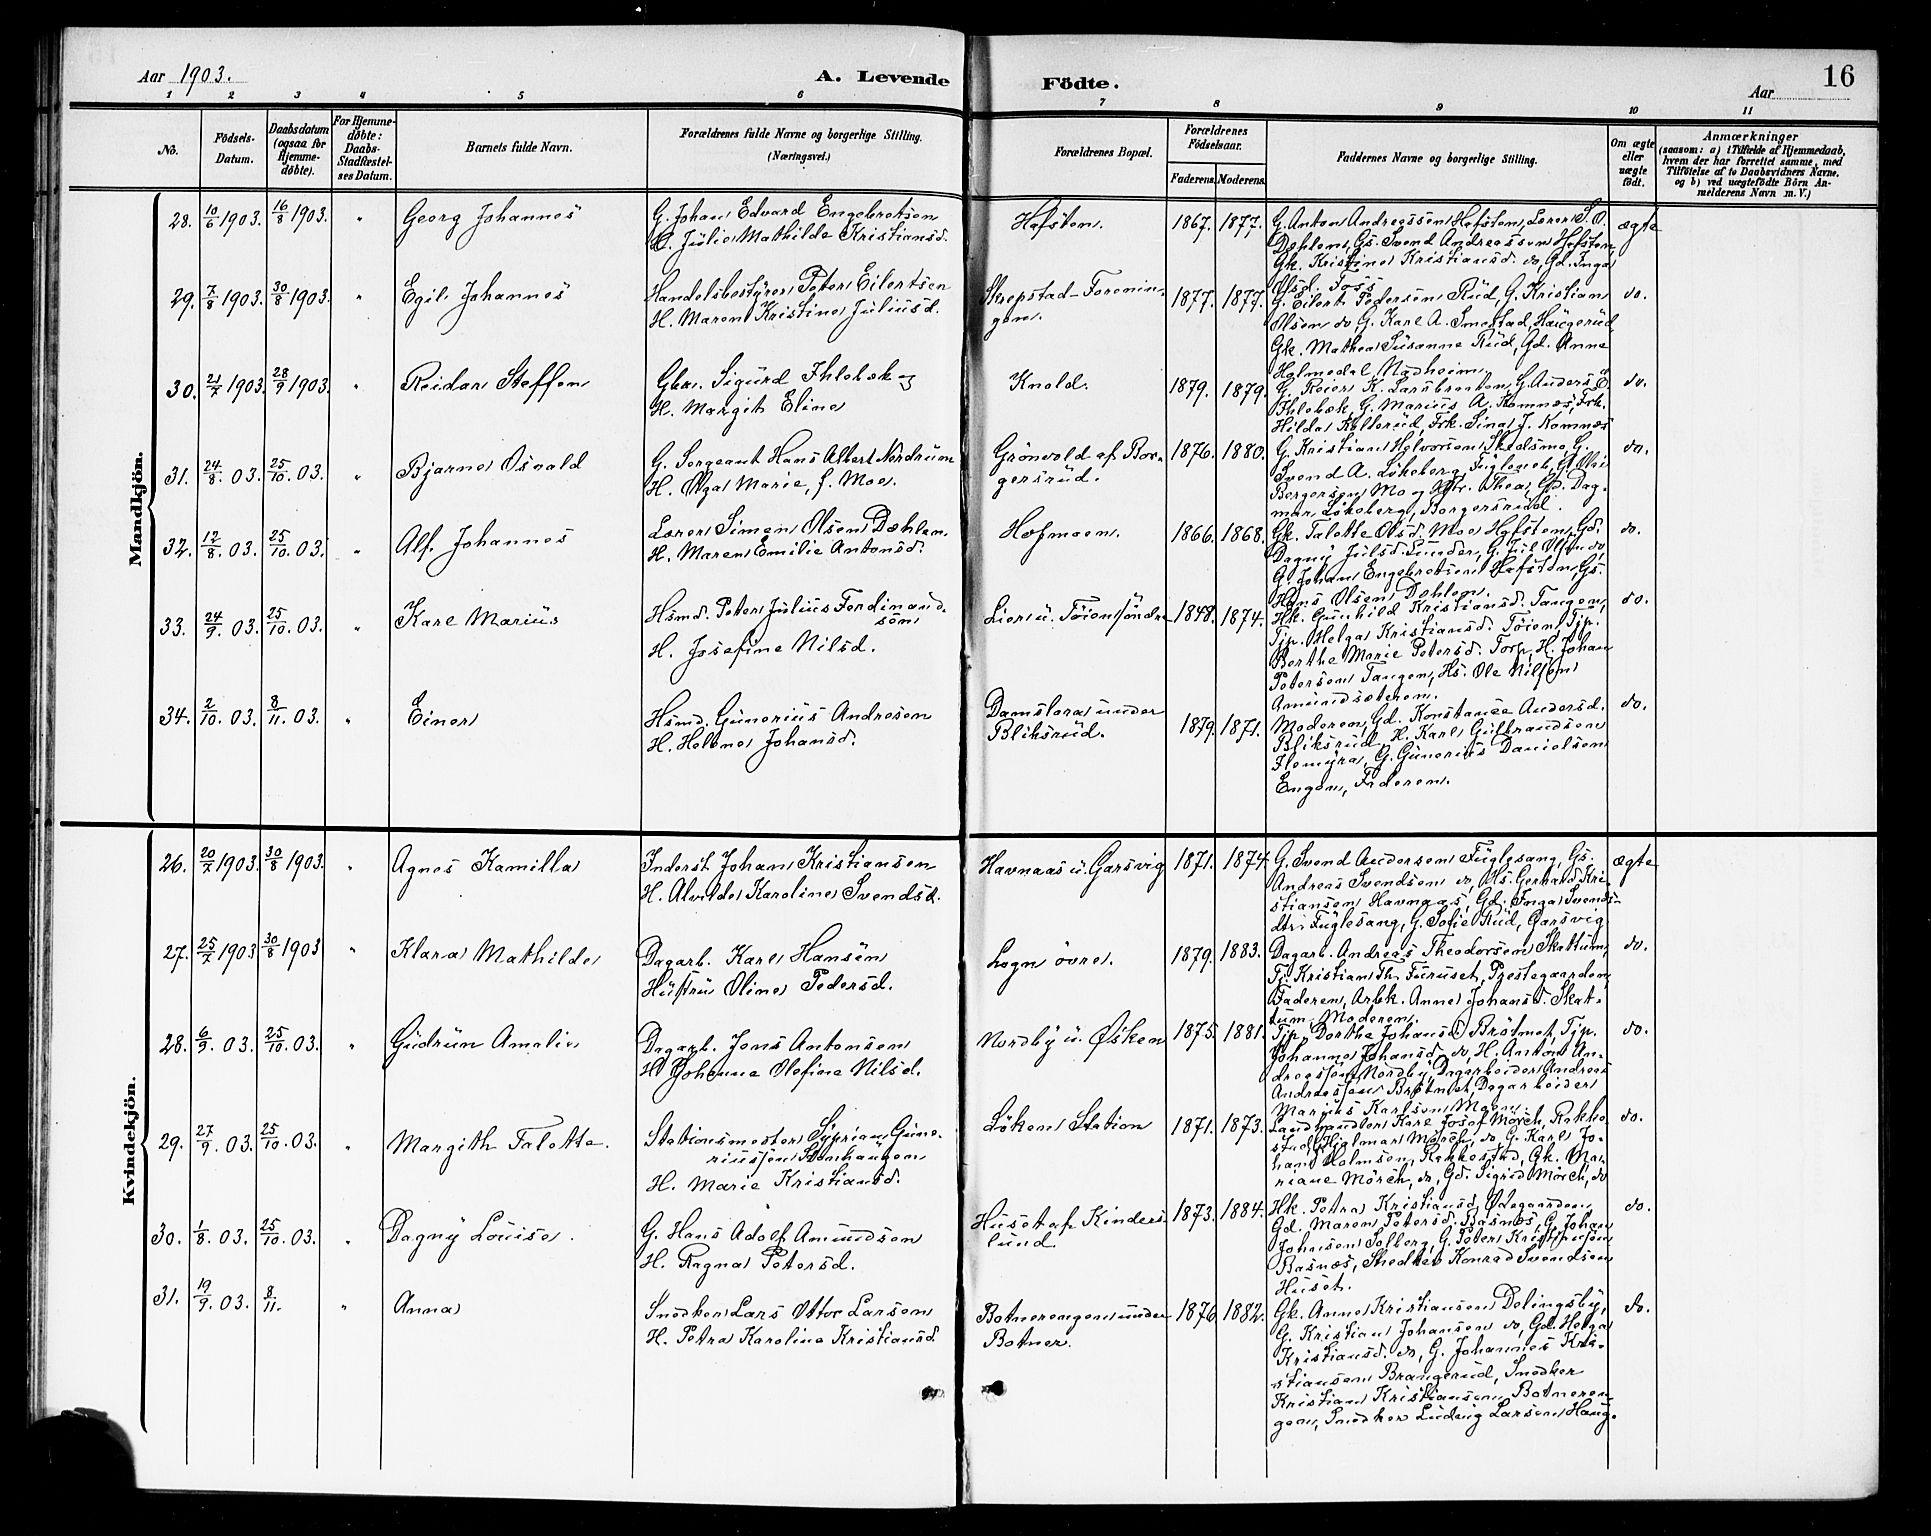 Aar 1903.
A. Levende
Födte.
Aar
16
1 2 3 4 5 6
7 8 9 10 11
No.
Födsels-
Datum.
Daabsdatum
(ogsaa for
Hjemme-
døbte).
For Hjemme-
døbte:
Daabs-
Stadfæstel-
ses Datum.
Barnets fulde Navn.
Forældrenes fulde Navne og borgerlige Stilling.
(Næringsvei.)
Forældrenes Bopæl.
Forældrenes
Fødselsaar.
Faderens. Moderens.
Faddernes Navne og borgerlige Stilling.
Om ægte
eller
uægte
født.
Anmærkninger
(saasom: a) i Tilfælde af Hjemmedaab,
hvem der har forrettet samme, med
Tilføielse af to Daabsvidners Navne,
og b) ved uægtefødte Börn An-
melderens Navn m. V.)
Mandkjön.
28. 10/6 1903. 16/8 1903. " Georg Johannes
G. Johan Edvard Engebretsen
H. Julie Mathilde Kristiansd.
Hafsten. 1867. 1877.
G. Anton Andreassen Hafsten, Lærer S. O.
Dæhlen, Gs. Svend Andreassen Hafsten,
Gk. Kristine Kristiansd. do, Gd. Inga
Olsd. Foss
ægte
29. 7/8 1903. 30/8 1903. " Egil Johannes
Handelsbestyrer Peter Eilertsen
H. Maren Kristine Juliusd.
Skrepstad-Forenin-
gen. 1877. 1877.
G. Eilert Pedersen Rud, G. Kristian
Olsen do, G. Karl A. Smestad, Haugerud,
Gk. Mathea Susanne Rud, Gd. Anne
Holmedal, Modheim
do.
30. 21/7 1903. 28/9 1903. " Reidar Steffen
Gbr. Sigurd Ihlebæk og
H. Margit Eline
Knold. 1879. 1879.
G. Reier K. Larsbraaten, G. Anders E
Ihlebæk, G. Marius A. Komnæs, Frk.
Hilda Kolterud, Frk. Sina J. Komnæs
do.
31. 24/8. 03. 25/10. 03. " Bjarne Osvald
G. Sergeant Hans Albert Nordrum
H. Olga Marie, f. Moe.
Grönvold af Bor-
gersrud. 1876. 1880.
G. Kristian Halvorsen Skedsmo, G.
Svend A. Lökeberg, Fugleneb, G. Ole
Bergersen Mo og Hstr. Thea, Gd. Dag-
mar Lökeberg, Borgersrud.
do.
32. 12/8. 03. 25/10. 03. " Alf Johannes
Lærer Simen Olsen Dæhlen.
H. Maren Emilie Antonsd.
Hofmoen. 1866. 1868.
Gk. Talette Olsd. Moe Hafsten, Gd.
Dagny Julsd. Lunder, G. Jul Olsen do,
G. Johan Engebretsen Hafsten, Gs.
Hans Olsen Dæhlen.
do.
33. 24/9. 03. 25/10. 03. " Karl Marius
Hsmd. Peter Julius Ferdinand-
sen
H. Josefine Nilsd.
Lier u. Töien söndre 1848. 1874.
Hk. Gunhild Kristiansd. Tangen,
Tjp. Helga Kristiansd. Töien, Tjp.
Berthe Marie Petersd. Torp, H. Johan
Petersen Tangen, Hs. Ole Nilsen
Amundsæteren.
do.
34. 2/10. 03. 8/11. 03. " Einer
Hsmd. Gunerius Andresen
H. Helene Johansd.
Damslora under
Bliksrud. 1879. 1871.
Moderen, Gd. Konstance Andersd.
Bliksrud, H. Karl Gulbrandsen
Flemyra, G. Gunerius Danielsen
Engen, Faderen.
do.
Kvindekjön.
26. 20/7 1903. 30/8 1903. " Agnes Kamilla
Inderst Johan Kristiansen
H. Alvilde Karoline Svendsd.
Havnaas u. Garsvig 1871. 1874.
G. Svend Andersen Fuglesang, Gs.
Andreas Svendsen do, Hs. Gerhard Kri-
stiansen Havnaas, Gd. Inga Svends-
dtr. Fuglesang, G. Sofie Rud, Garsvig
ægte
27. 25/7 1903 30/8 1903 " Klara Mathilde
Dagarb. Karl Hansen
Hustru Oline Pedersd.
Logn övre. 1879. 1883.
Dagarb. Andreas Theodorsen Skattum,
Tj. Kristian Th. Furuset, Prestegaarden,
Faderen, Arbk. Anne Johansd. Skat-
tum, Moderen.
do.
28. 6/9. 03. 25/10. 03. " Gudrun Amalie
Dagarb. Jens Antonsen
H. Johanna Olefine Nilsd.
Nordby u. Øsken 1875. 1881.
Tjp. Dorthe Johansd. Brötmet, Tjp.
Johanne Johansd. do, H. Anton An-
dreassen Nordby, Dagarbeider Andreas
Andreassen Brötmet, Dagarbeider
Marius Karlsen Moen
do.
29. 27/9. 03. 25/10. 03. " Margith Talette.
Stationsmester Syprian Gune-
riussen Stenhaugen
H. Marie Kristiansd.
Löken Station 1871. 1873.
Landhandler Karl Josef Mörch, Rakke-
stad, Hjalmar Mörch, do, G. Karl Jo-
han Holmsen, Rakkestad, Gk. Ma-
riane Mörch, do, Gd. Sigrid Mörch, do
do.
30. 1/8. 03. 25/10. 03. " Dagny Louise.
G. Hans Adolf Amundsen
H. Ragna Petersd.
Huset af Kinders-
lund. 1873. 1884.
Hk. Petra Kristiansd. Ødegaarden,
Gd. Maren Petersd. Basnæs, G. Johan
Johnsen Solberg, G. Peter Kristiansen
Basnæs, Snedker Konrad Svendsen
Huset.
do.
31. 19/9. 03. 8/11. " Anna
Snedker Lars Ottar Larsen
H. Petra Karoline Kristiansd
Botnerengen under
Botner. 1876 1882.
Gk. Anne Kristiansen Delingsby,
G. Kristian Johansen do, Gd. Helga
Kristiansd. do, G. Johannes Kri-
stiansen Brangerud, Snedker
Kristian Kristiansen Botneren-
gen, Snedker Ludvig Larsen Haug.
do.